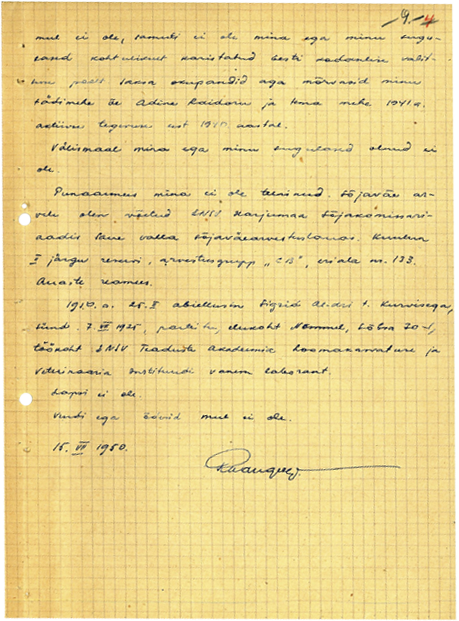 -9- 4
mul ei ole, samuti ei ole mina ega minu sugu-
lased kohtulikult karistatud Eesti kodanlise valit-
suse poolt. Saksa okupandid aga mõrvasid minu
tädimehe õe Adine Raidaru ja tema mehe 1941 a.
aktiivse tegevuse eest 1940. aastal.
Välismaal mina ega minu sugulased olnud ei
ole.
Punaarmees mina ei ole teeninud. Sõjaväe ar-
vele olen võetud ENSV Harjumaa Sõjakomissari-
aadis Saue valla sõjaväearvestuslauas. Kuulun
I järgu reservi, arvestusgrupp "CB", eriala nr. 133.
Auaste reamees.
1950. a. 25. abiellusin Sigrid t. Kurvisega,
sünd. 7. VII 1925, parteitu, elukoht Nõmmel, Sõbra
töökoht ENSV Teaduste Akadeemia Loomakasvatuse ja
Veterinaaria Instituudi vanem laborant.
Lapsi ei ole.
Vendi ega õdesid mul ei ole.
15. VII 1950.